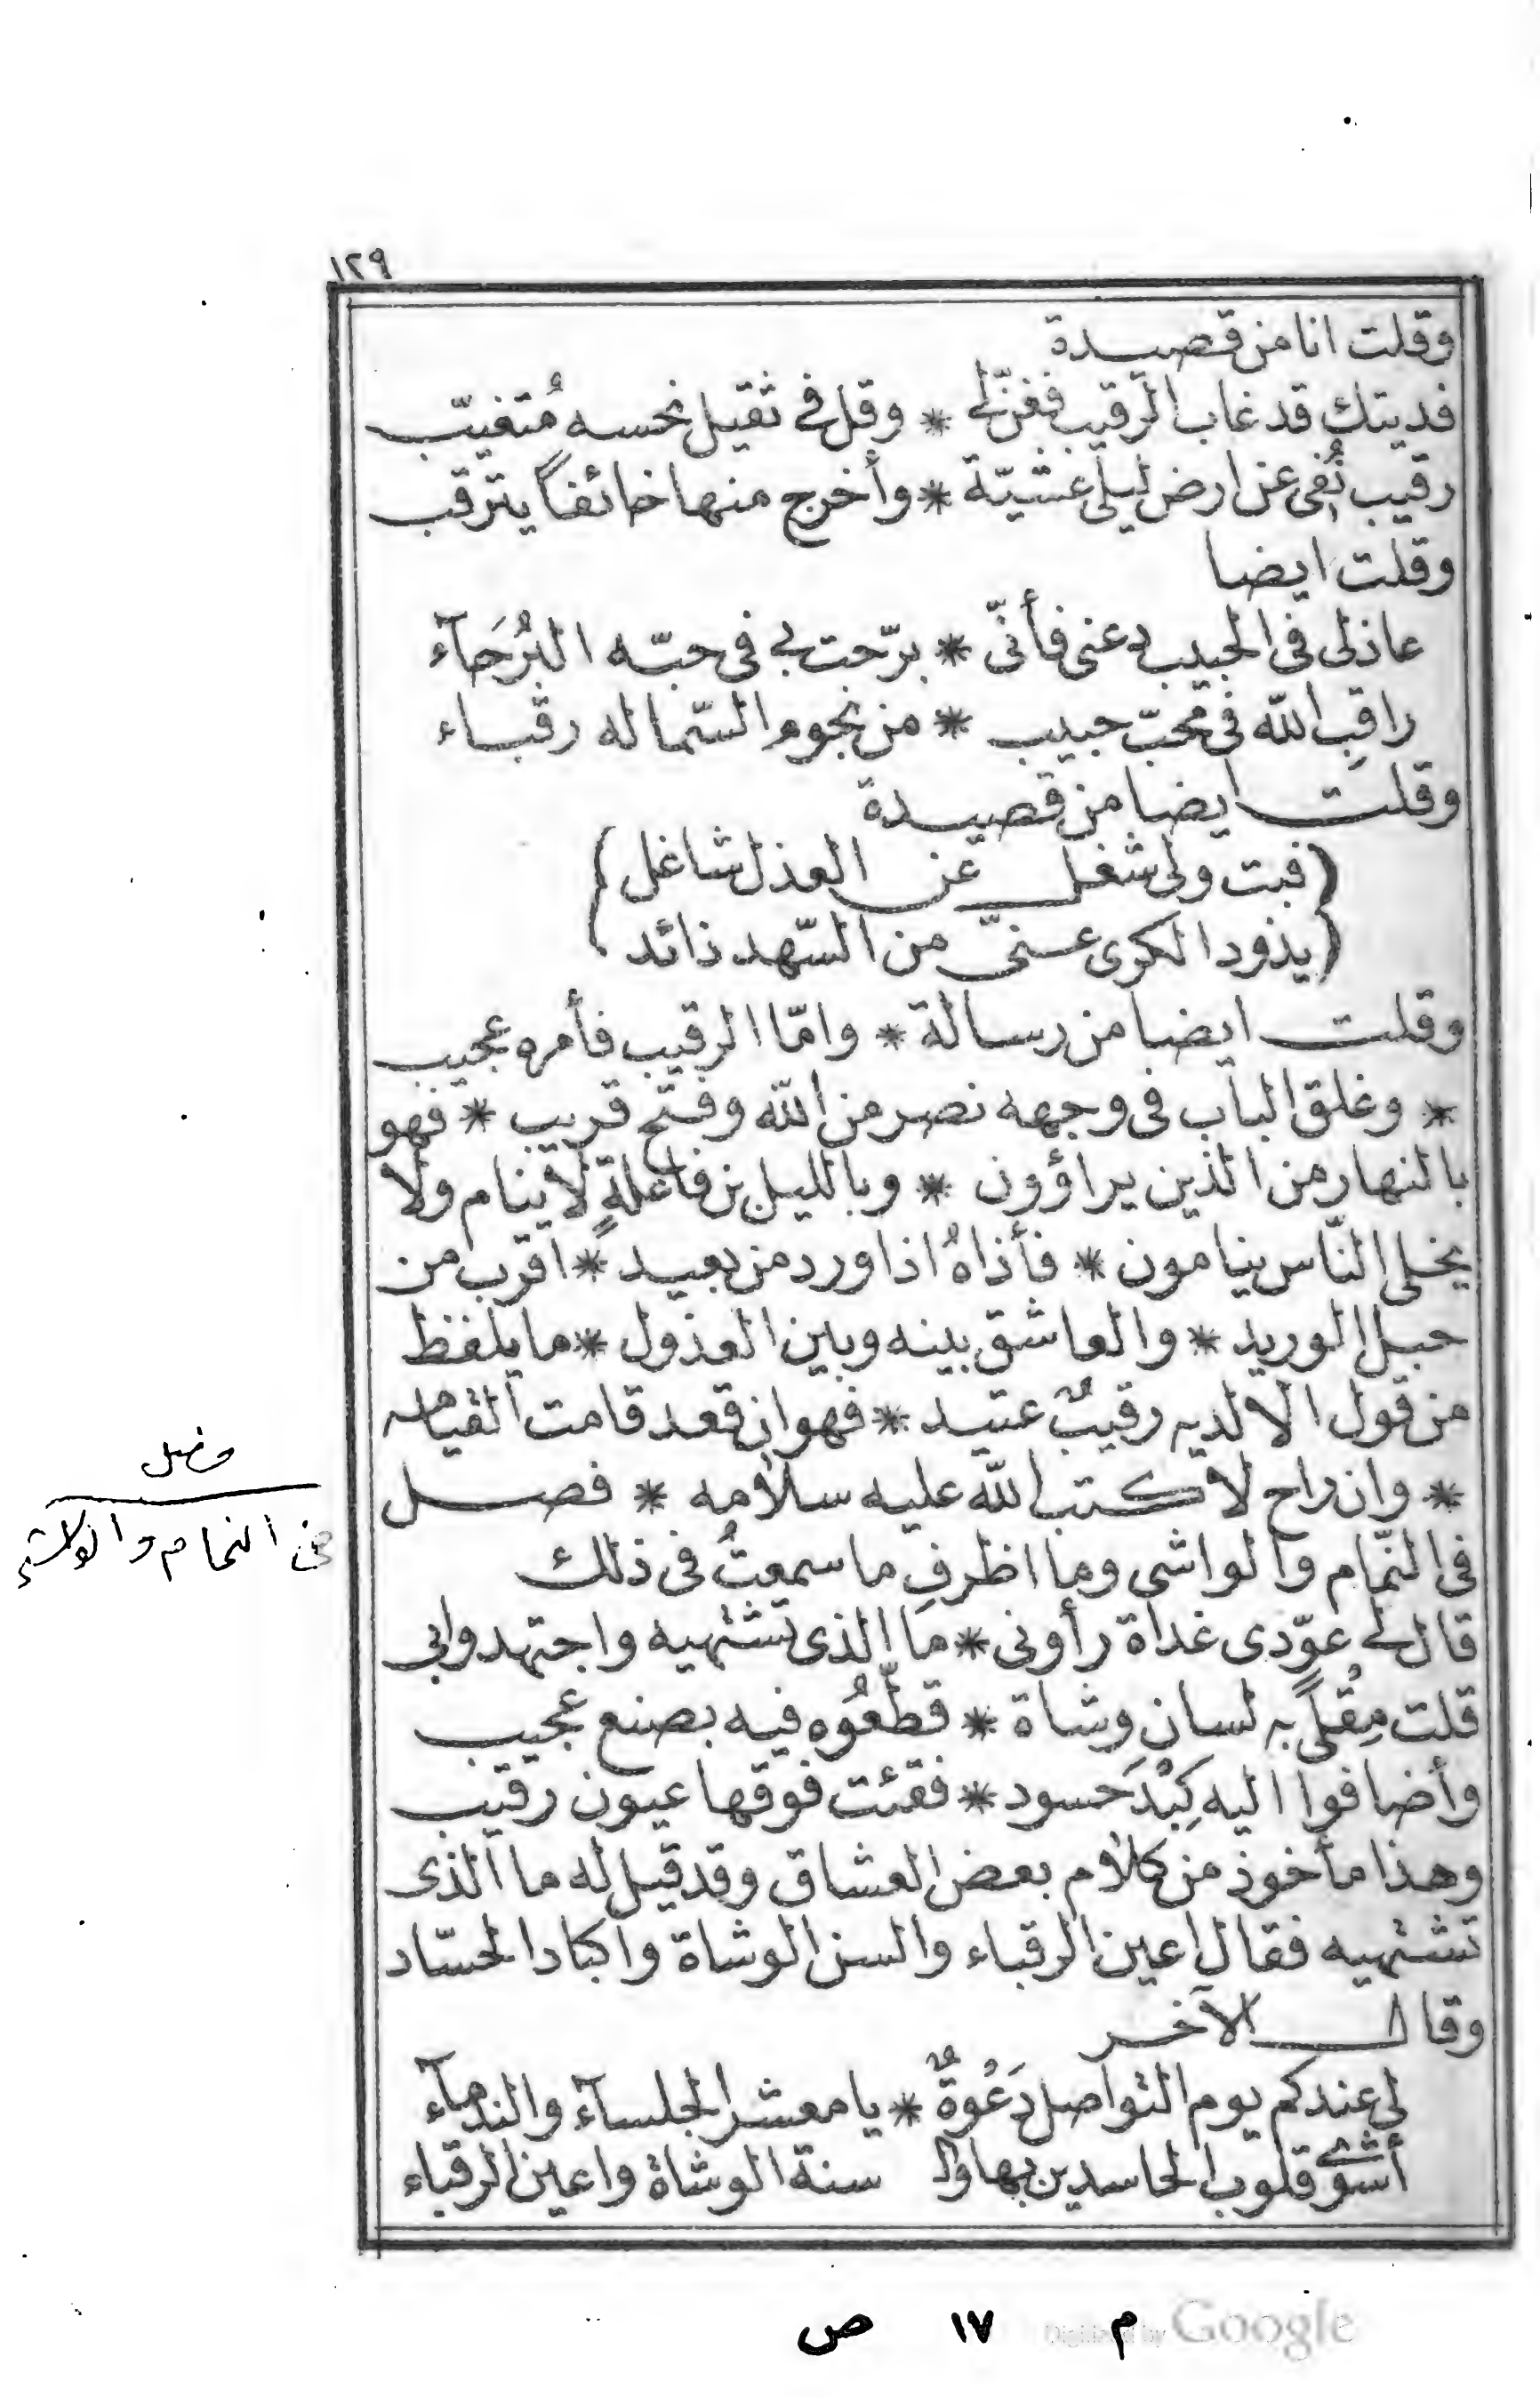 ١٢٩
وقلت انا من قصيدة
فديتك قد غاب الرّقيب فغنّ لے * وقل فے ثقيل نحسه مُتغيّب
رقيب نُفى عن ارض ليلى عشيّة * وأخرج منها خائفاً يترقب
وقلت ايضا
عاذلى فى الحبيب دعنى فأنّى * برّحت بے فى حبّه البُرَحآء
راقبِ اللّه فى محبّ حبيب * من نجوم السّما له رقباء
وقلت ايضا من قصيدة
(فبت ولى شغل عن العذل شاغل)
(يذود الكرى عنىّ من السّهد ذائد)
وقلت ايضا من رسالة * وامّا الرقيب فأمره عجيب
* وغلق الباب فى وجهه نصر من اللّه وفتح قريب * فهو
بالنهار من الذين يراؤون * وبالليل بن فاعلةٍ لا ينام ولا
يخلى النّاس ينامون * فأذاهُ اذا ورد من بعيد * اقرب من
حبل الوريد * والعاشق بينه وبين العذول * ما يلفظ
من قول الا لديه رقيبٌ عتيد * فهو ان قعد قامت القيامه
* وان راح لا كتب اللّه عليه سلامه * فصل
فى النّمام والواشى وما اظرف ما سمعتُ فى ذلك
قال لے عوّدى غداة رأونى * ما الذى تشتهيه واجتهدوا بى
قلت مِقْلًى به لسان وِشاة * قطّعُوه فيه بصنع عجيب
وأضافوا اليه كِبْدَ حسود * فقئت فوقها عيون رقيب
وهذا مأخوذ من كلام بعض العشاق وقد قيل له ما الذى
تشتهيه فقال اعين الرقباء والسن الوشاة واكباد الحسّاد
وقال الآخر
لى عندكم يوم التواصل دَعْوةٌ * يا معشر الجلسآء والندمآء
أشوى قلوب الحاسدين بها وال سنة الوشاة واعين الرقباء
فصل
فى النمام والواشى
م ١٧ ص
Digitized by Google